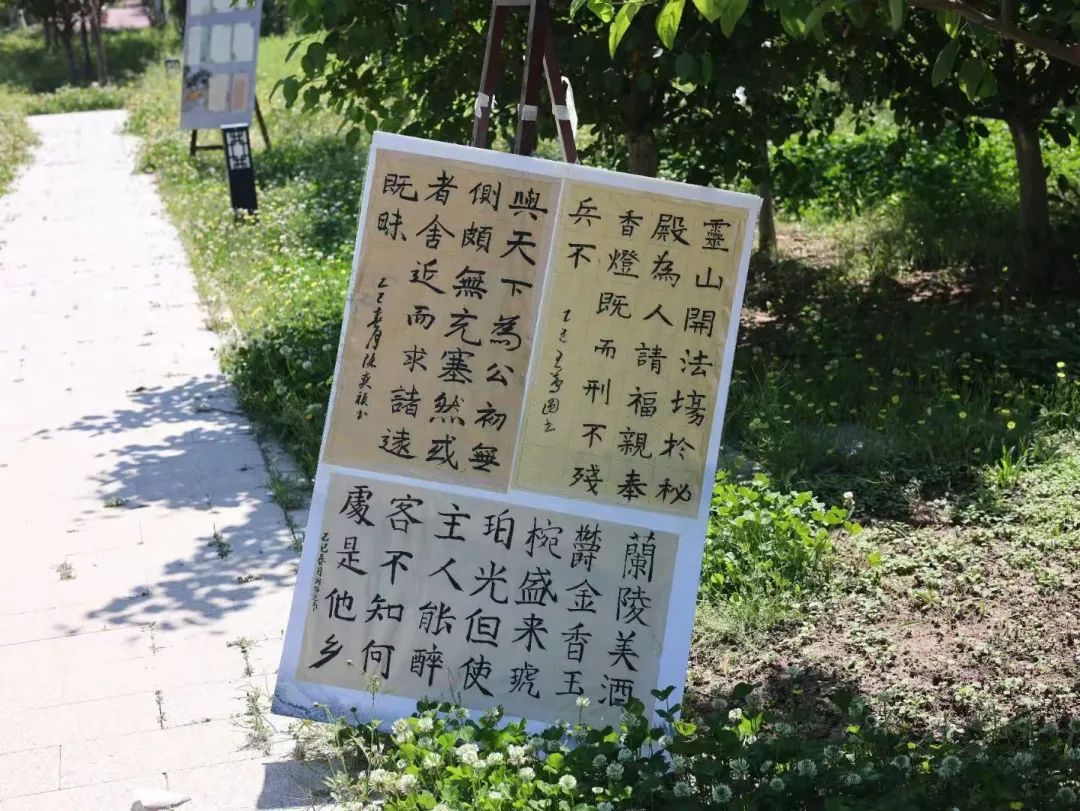 靈山開法塲於秘
殿為人請福親奉
香燈既而刑不殘
兵不
乙巳
與天下為公初無
側頗無充塞然或
者舍近而求諸遠
既昧
乙巳春月
蘭陵美酒
欝金香玉
椀盛来琥
珀光但使
主人能醉
客不知何
處是他乡
乙巳春月